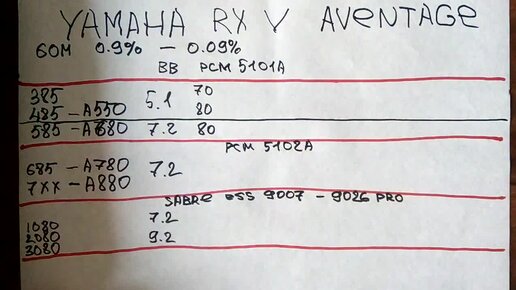 YAMAHA RX V AVENTAGE
60M 0.9% - 0.09%
BB PCM 5101A
385 5.1 70
485 - A550 80
585 - A680 7.2 80
PCM 5102A
685 - A780 7.2
7XX - A880
SABRE ESS 9007 - 9026 PRO
1080 7.2
2080 9.2
3080